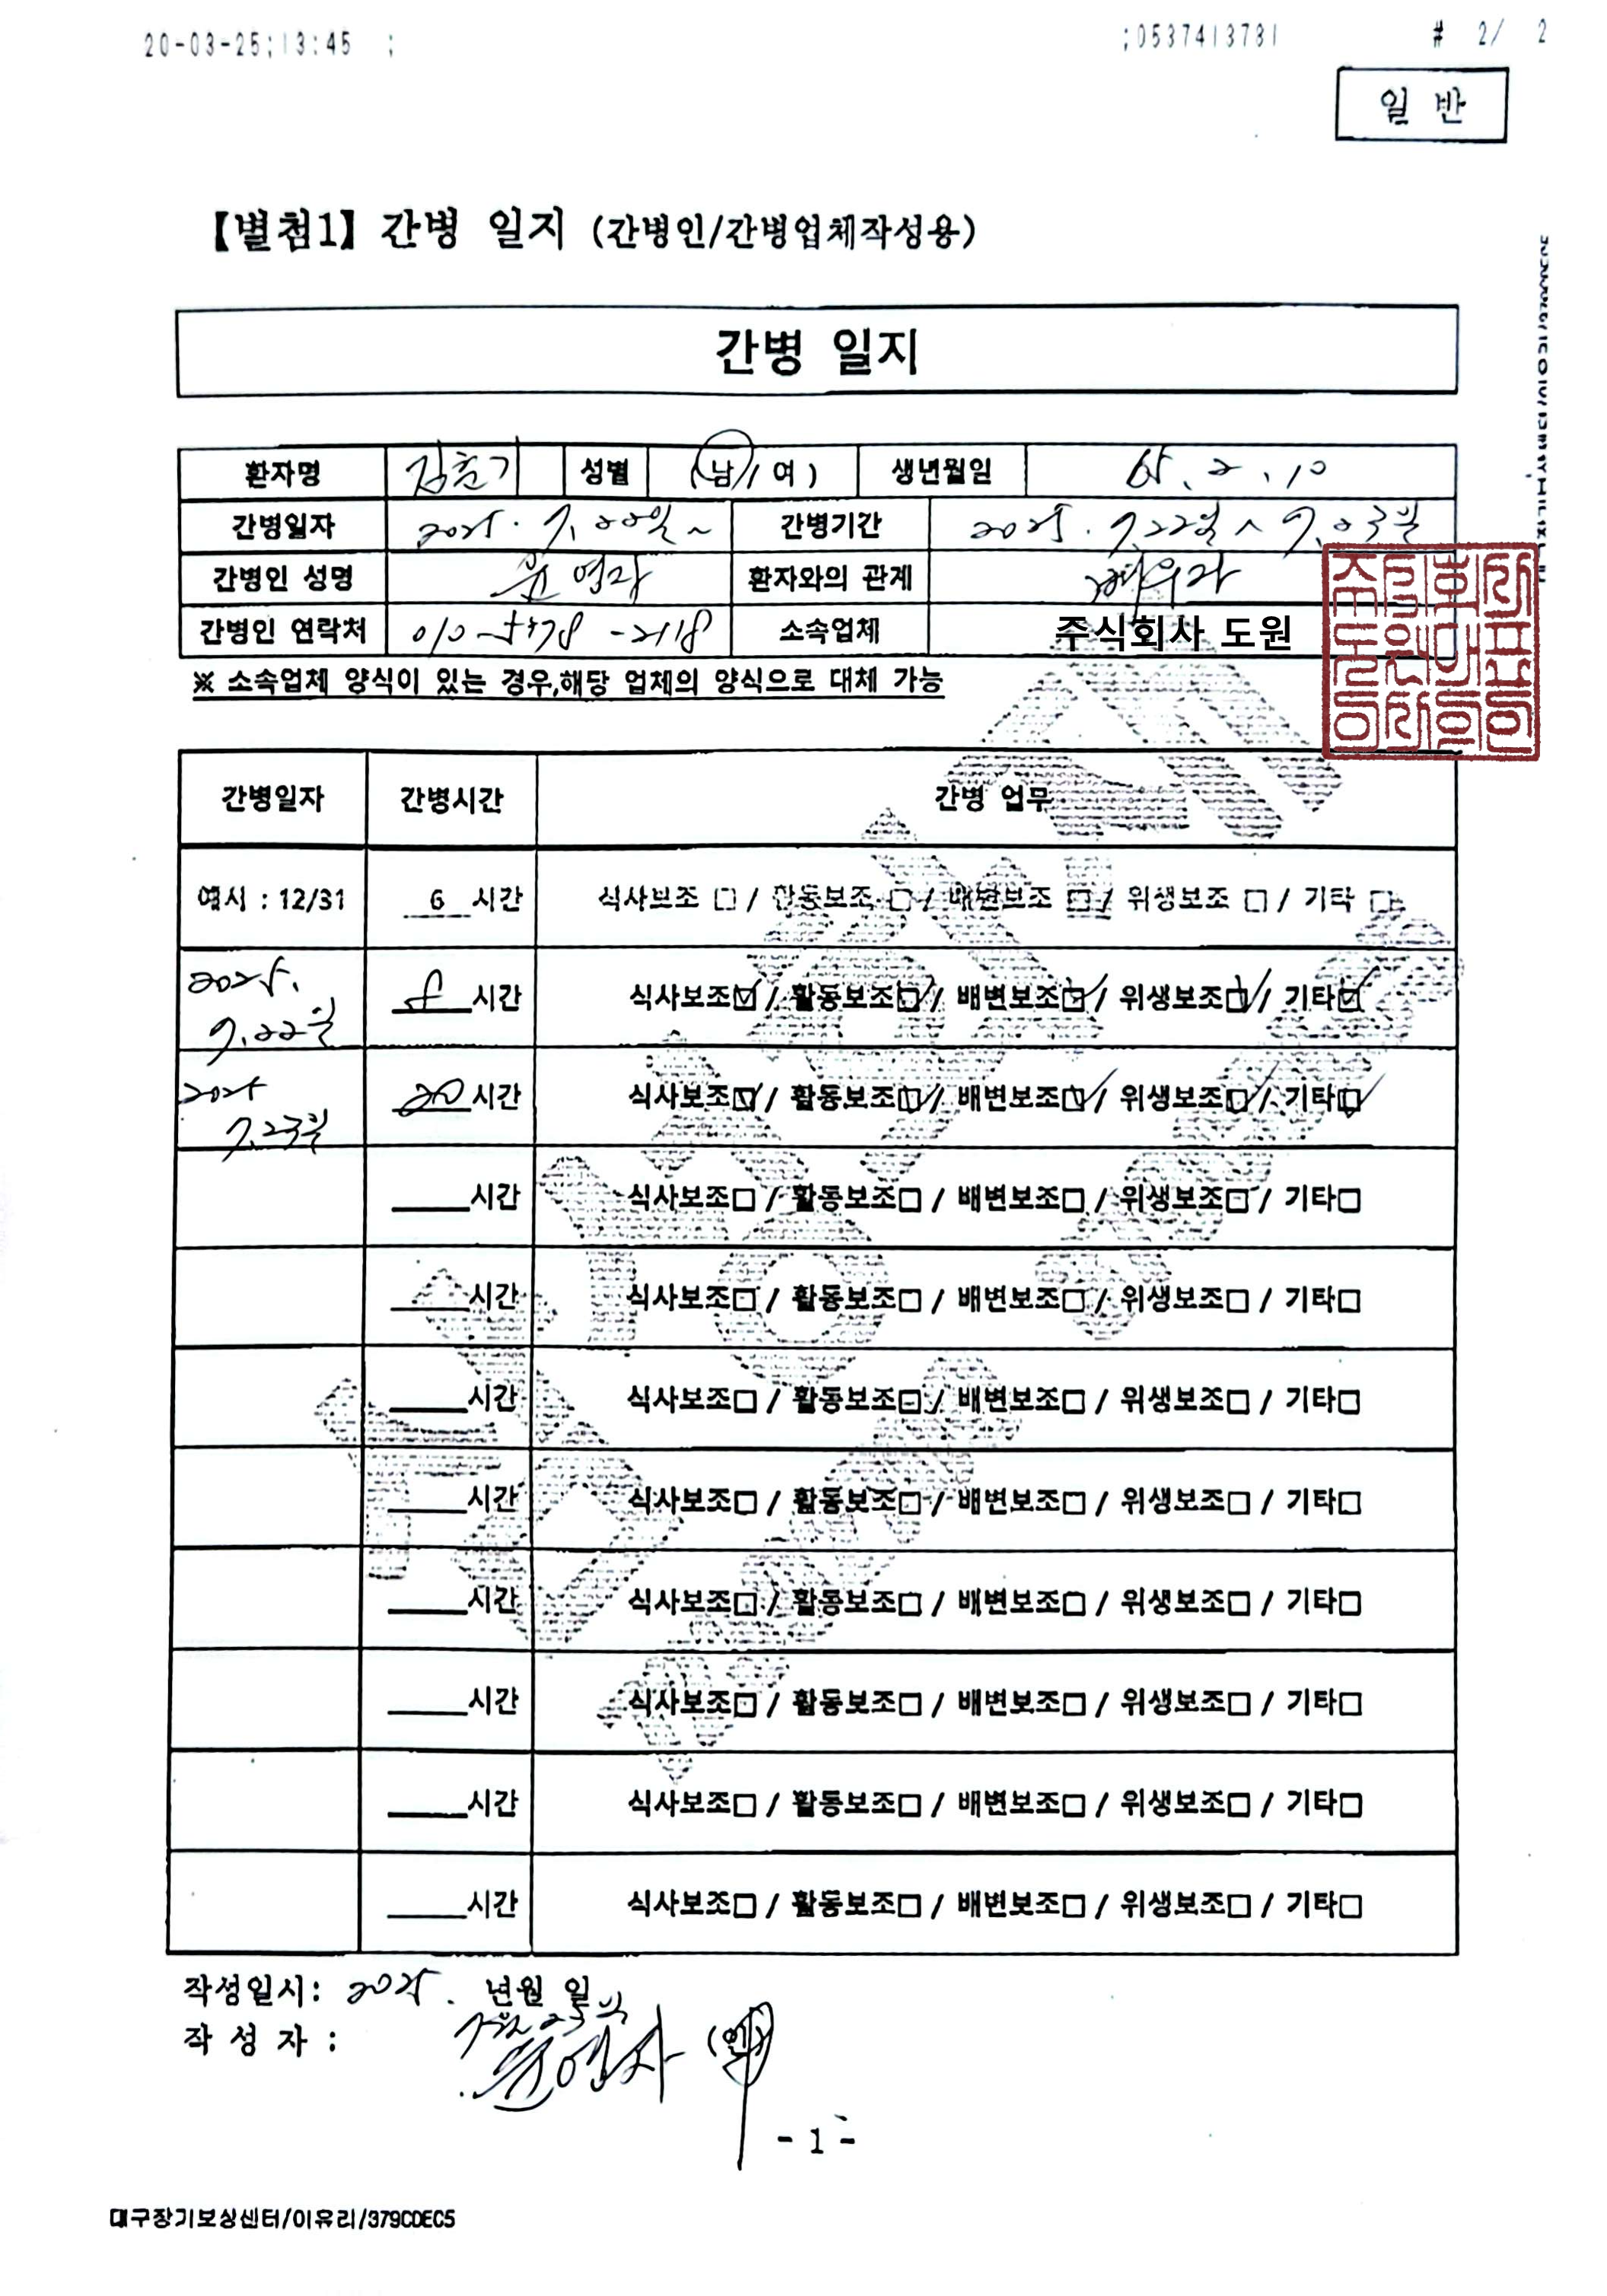 20-03-25;13:45 ;
;0537413731 # 2/ 2
일 반
【별첨1】 간병 일지 (간병인/간병업체작성용)
간병 일지
환자명 김춘기 성별 (남/여) 생년월일 65. 2. 10
간병일자 2025. 7. 22일 ~ 간병기간 2025. 7. 22일 ~ 7. 23일
간병인 성명 윤영자 환자와의 관계 배우자
간병인 연락처 010-5478-2118 소속업체 주식회사 도원
※ 소속업체 양식이 있는 경우,해당 업체의 양식으로 대체 가능
간병일자 간병시간 간병 업무
예시 : 12/31 6 시간 식사보조 □ / 활동보조 □ / 배변보조 □ / 위생보조 □ / 기타 □
2025. 7. 22일 8 시간 식사보조☑ / 활동보조☑ / 배변보조☑ / 위생보조☑ / 기타☑
2025 7. 23일 20 시간 식사보조☑ / 활동보조☑ / 배변보조☑ / 위생보조☑ / 기타☑
시간 식사보조□ / 활동보조□ / 배변보조□ / 위생보조□ / 기타□
시간 식사보조□ / 활동보조□ / 배변보조□ / 위생보조□ / 기타□
시간 식사보조□ / 활동보조□ / 배변보조□ / 위생보조□ / 기타□
시간 식사보조□ / 활동보조□ / 배변보조□ / 위생보조□ / 기타□
시간 식사보조□ / 활동보조□ / 배변보조□ / 위생보조□ / 기타□
시간 식사보조□ / 활동보조□ / 배변보조□ / 위생보조□ / 기타□
시간 식사보조□ / 활동보조□ / 배변보조□ / 위생보조□ / 기타□
시간 식사보조□ / 활동보조□ / 배변보조□ / 위생보조□ / 기타□
작성일시: 2025. 년월 일
7월 23일
작 성 자 : 윤영자 (인)
- 1 -
대구장기보상센터/이유리/379CDEC5